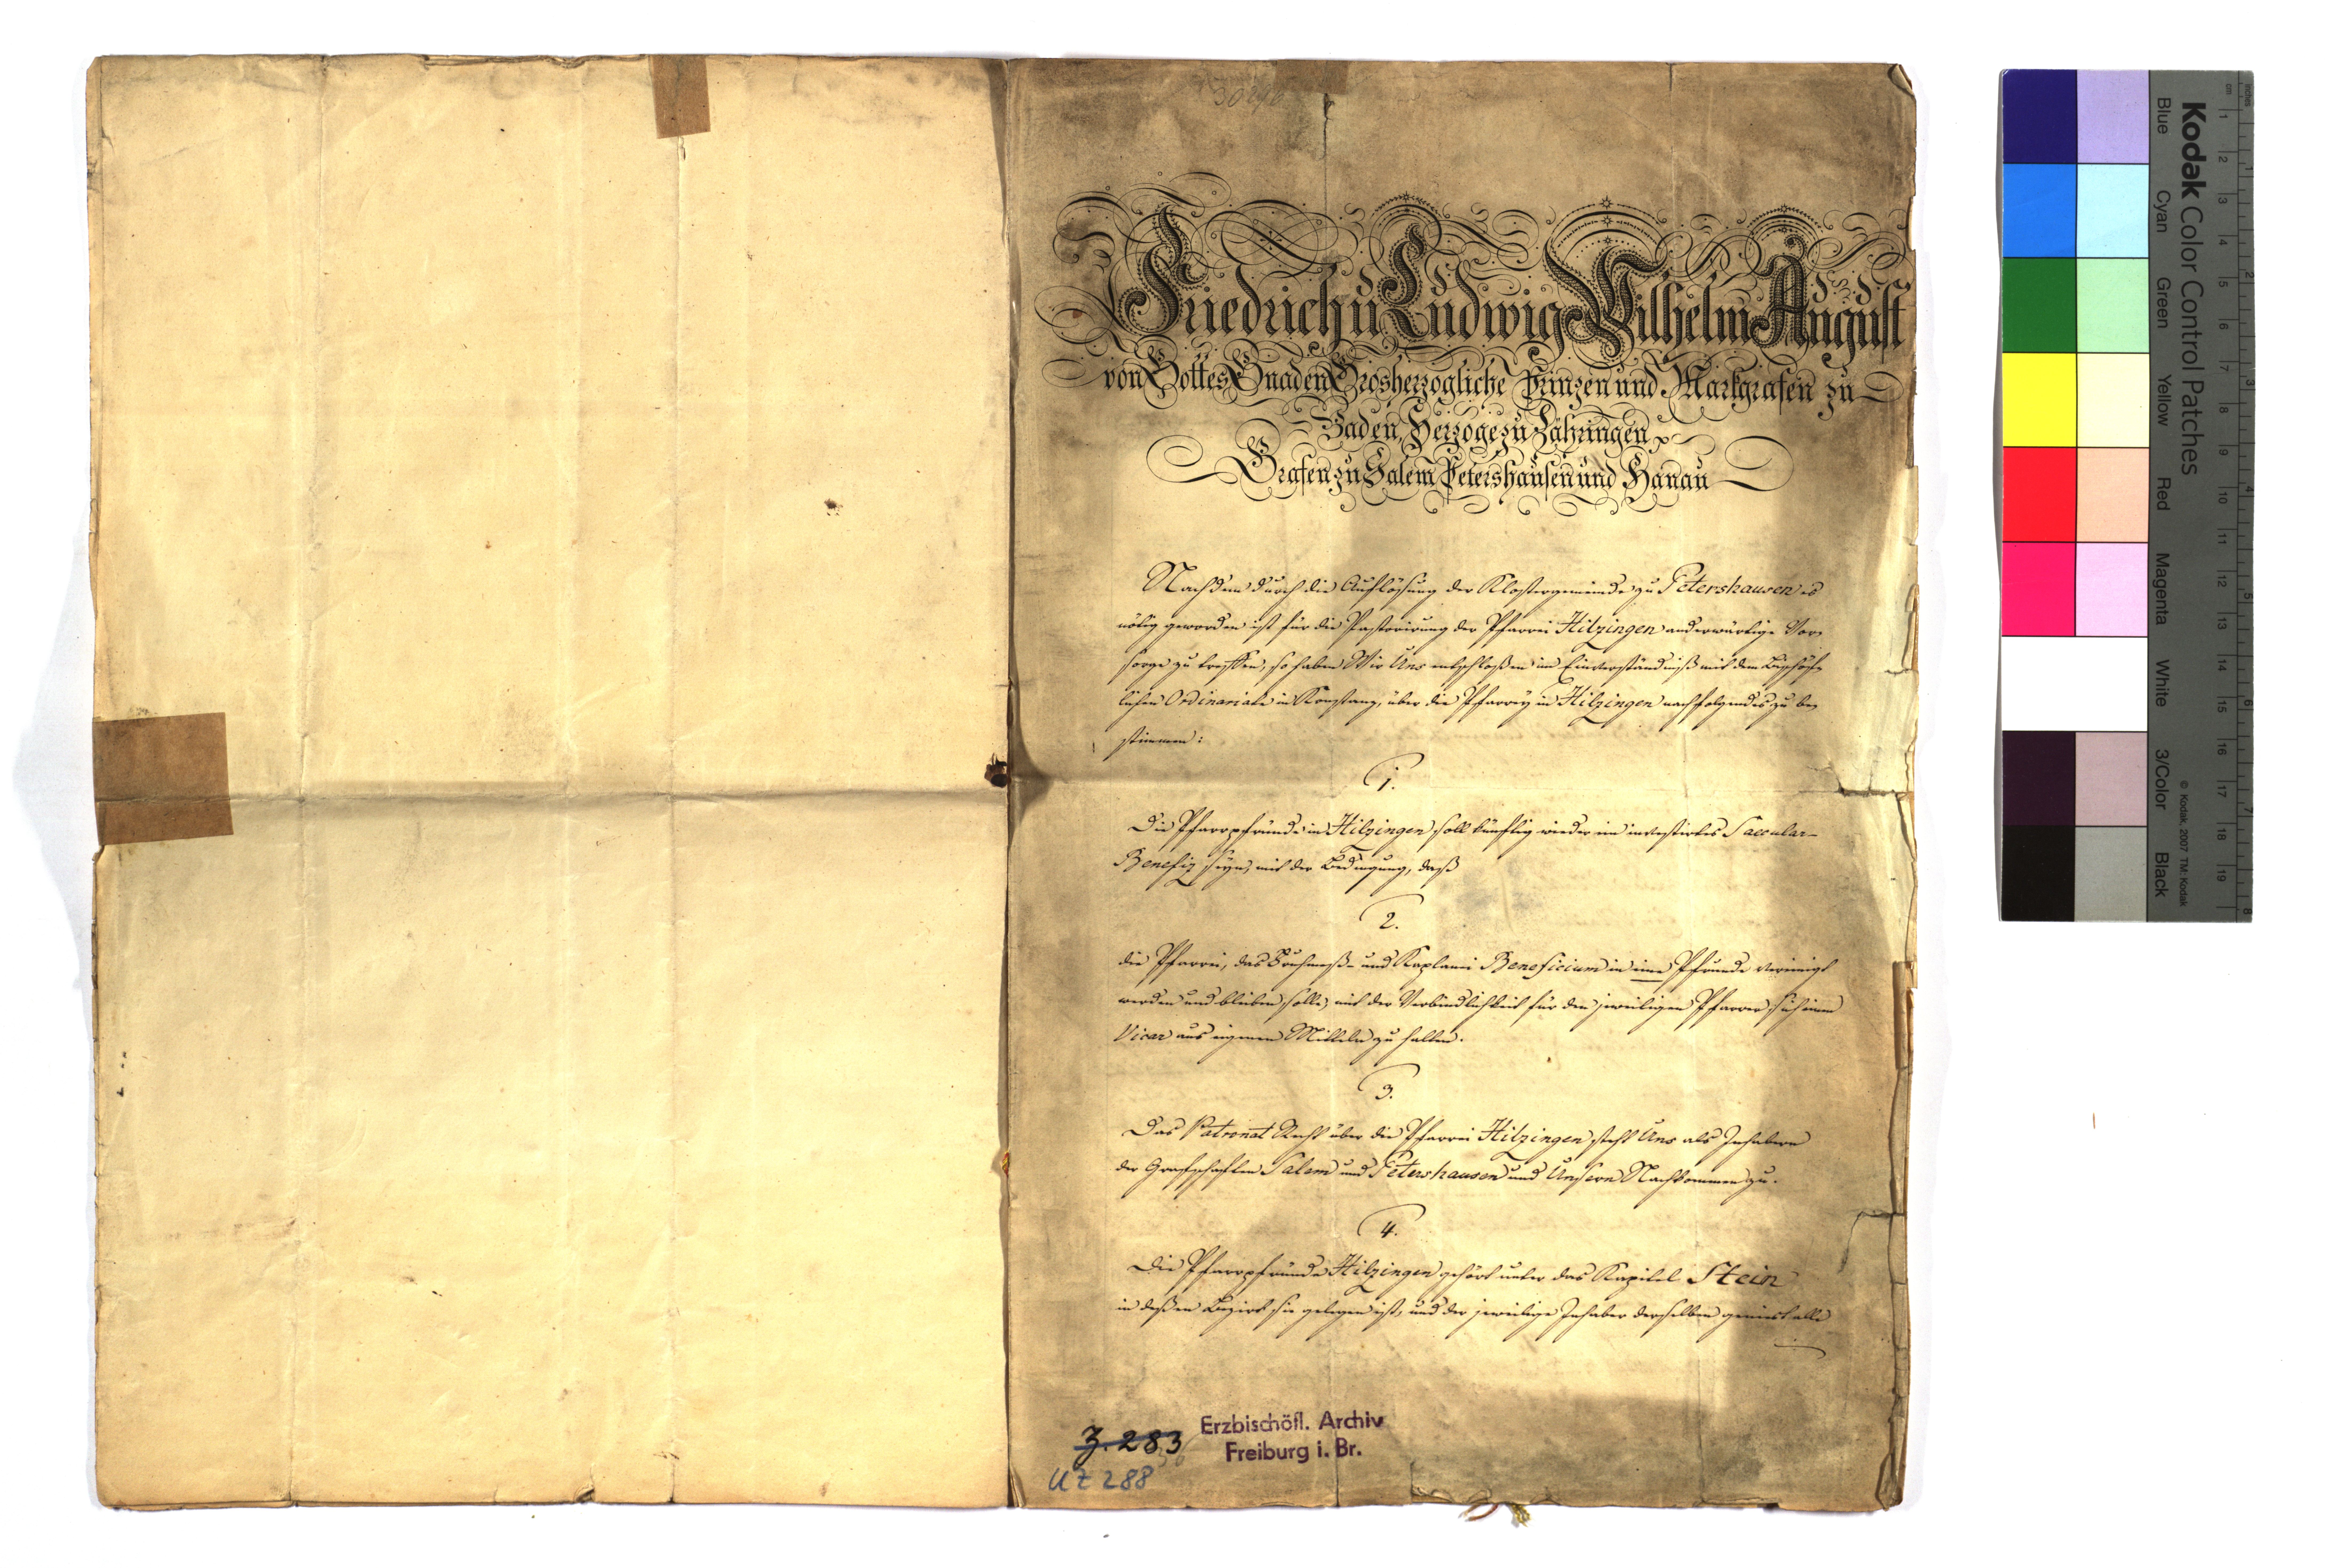 Friedrich u Ludwig Wilhelm August
von Gottes Gnaden Grosherzogliche Prinzen und Markgrafen zu
Baden, Herzoge zu Zähringen
Grafen zu Salem Petershausen und Hanau
Nachdem durch die Auflösung der Klostergemeinde zu Petershausen es
nötig geworden ist für die Pastorirung der Pfarrei Hilzingen anderwärtige Vor-
sorge zu treffen, so haben Wir Uns entschloßen im Einverständniß mit dem Bischöf-
lichen Ordinariate in Konstanz, über die Pfarrey in Hilzingen nachfolgendes zu be-
stimmen:
1.
Die Pfarrpfründe in Hilzingen soll künftig wieder ein investirtes Saecular-
Benefiz seyn, mit der Bedingung, daß
2.
die Pfarrei, das Frühmeß- und Kaplanei Beneficium in eine Pfründe vereinigt
werden und bleiben solle, mit der Verbindlichkeit für den jeweiligen Pfarrer sich einen
Vicar aus eigenen Mitteln zu halten.
3.
Das Patronat Recht über die Pfarrei Hilzingen steht Uns als Inhabern
der Grafschaften Salem und Petershausen und Unsern Nachkommen zu.
4.
Die Pfarrpfründe Hilzingen gehört unter das Kapitel Stein
in deßen Bezirk sie gelegen ist, und der jeweilige Inhaber derselben genießt alle
Z. 283
Erzbischöfl. Archiv
Freiburg i. Br.
UZ 288
Kodak Color Control Patches
Blue Cyan Green Yellow Red Magenta White 3/Color Black
© Kodak, 2007 TM: Kodak
cm 1 2 3 4 5 6 7 8 9 10 11 12 13 14 15 16 17 18 19
inches 1 2 3 4 5 6 7 8